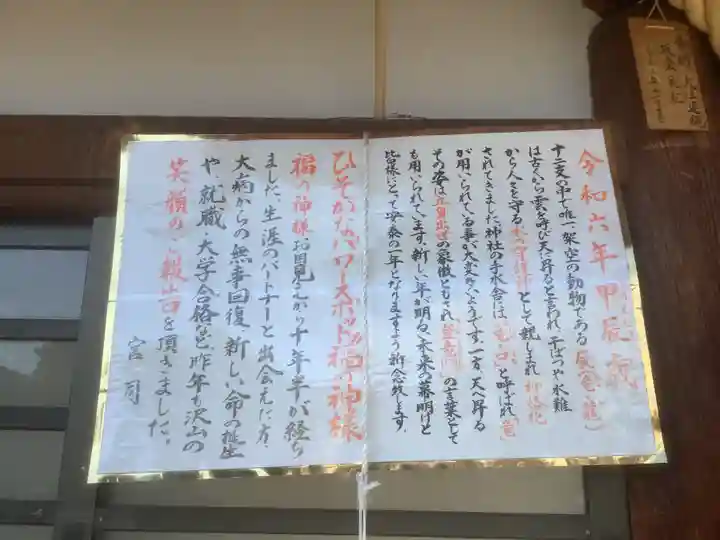 令和六年甲辰歳
十二支の中で唯一、架空の動物である辰(竜・龍)
は古くから雲を呼び天に昇ると言われ、干ばつや水難
から人々を守る水の守護神として親しまれ神格化
されてきました。神社の手水舎には、竜の口と呼ばれ「龍」
が用いられている事が大変多いようです。一方、天へ昇る
その姿は立身出世の象徴ともされ登竜門の言葉として
も用いられています。新しい年が明るい未来の幕明けと
皆様にとって安泰の一年となりますよう祈念致します。
ひそかなパワースポット福の神様
福の神様お目見えから十年半が経ち
ました。生涯のパートナーと出会えた方、
大病からの無事回復、新しい命の誕生
や、就職、大学合格など、昨年も沢山の
笑顔のご報告を頂きました。
宮司